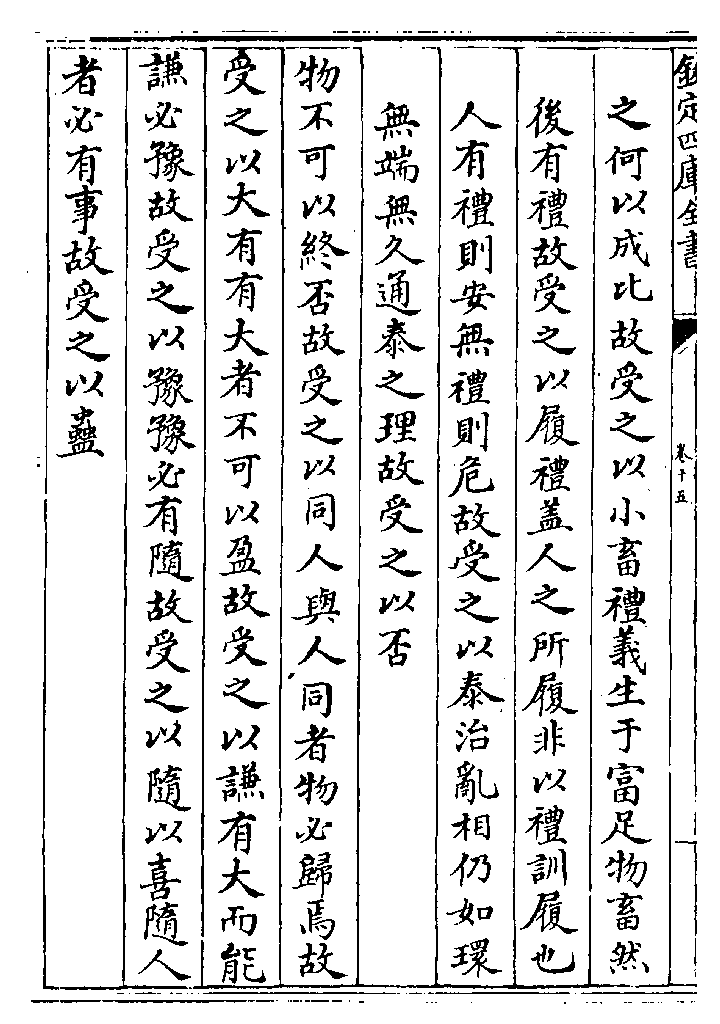 欽定四庫全書
卷十五
之何以成比故受之以小畜禮義生于富足物畜然
後有禮故受之以履禮蓋人之所履非以禮訓履也
人有禮則安無禮則危故受之以泰治亂相仍如環
無端無久通泰之理故受之以否
物不可以終否故受之以同人與人同者物必歸焉故
受之以大有有大者不可以盈故受之以謙有大而能
謙必豫故受之以豫豫必有隨故受之以隨以喜隨人
者必有事故受之以蠱